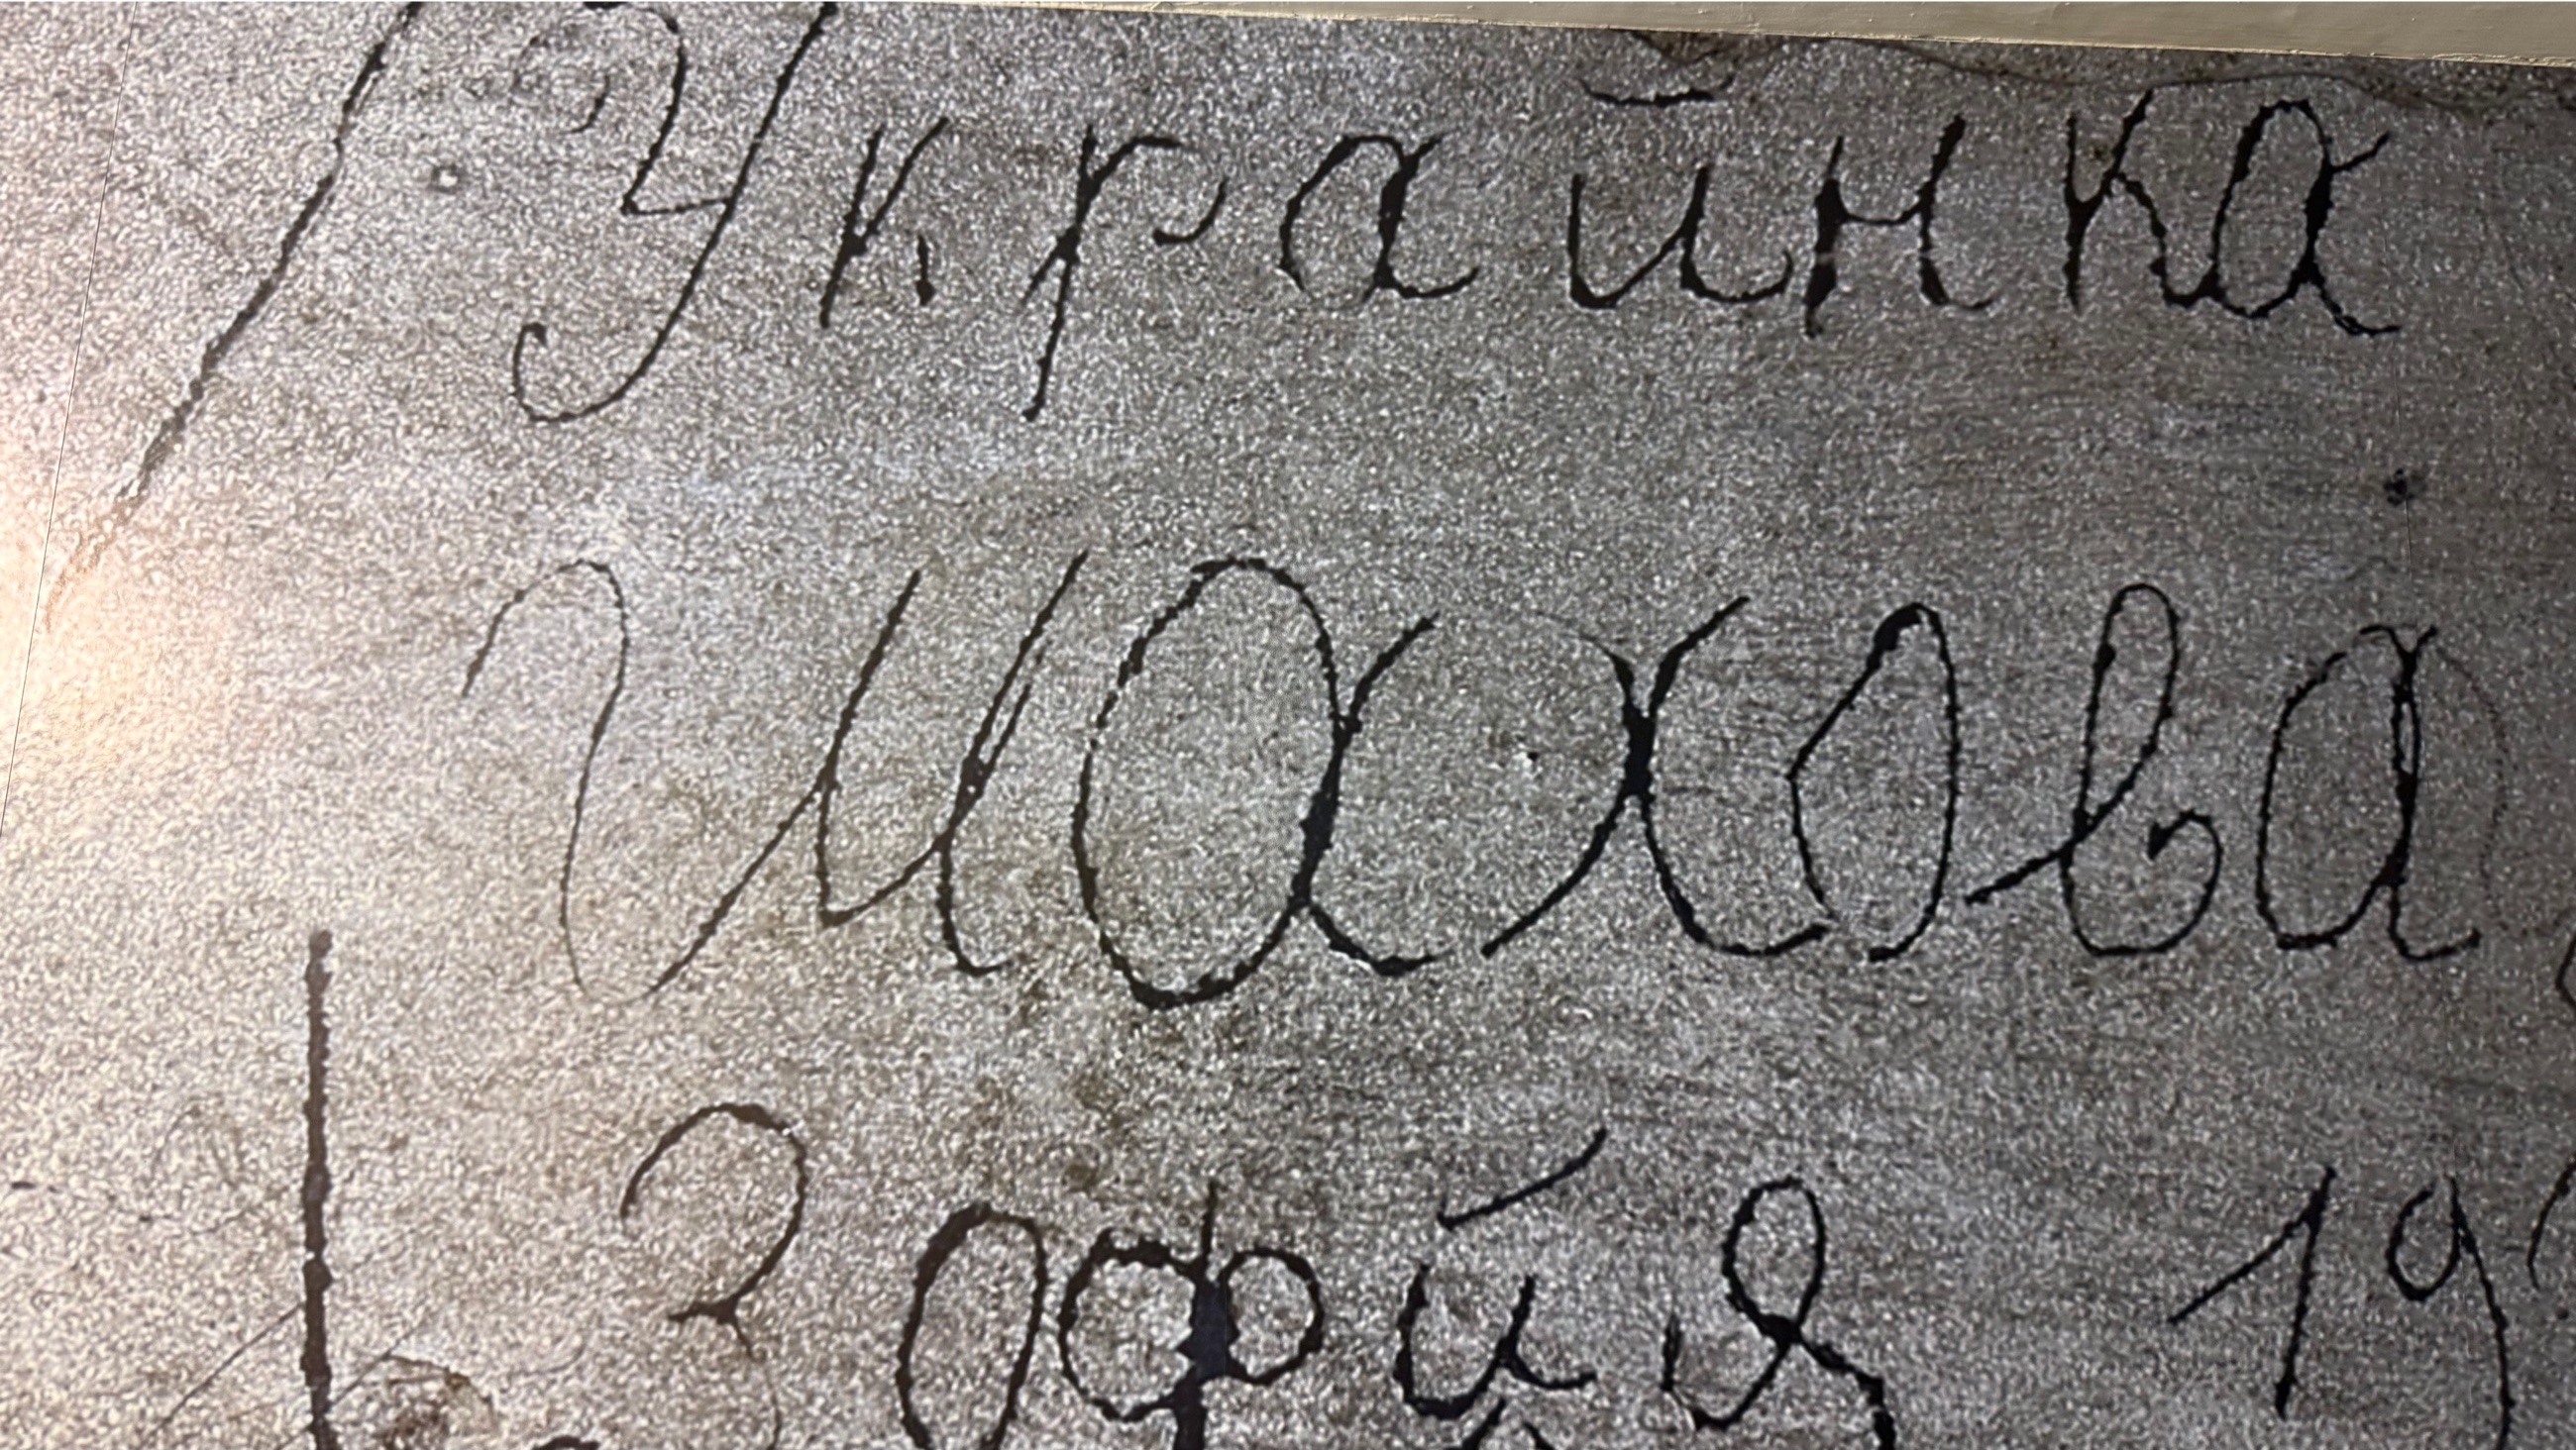 Украйнка
Махова
Зофия 19